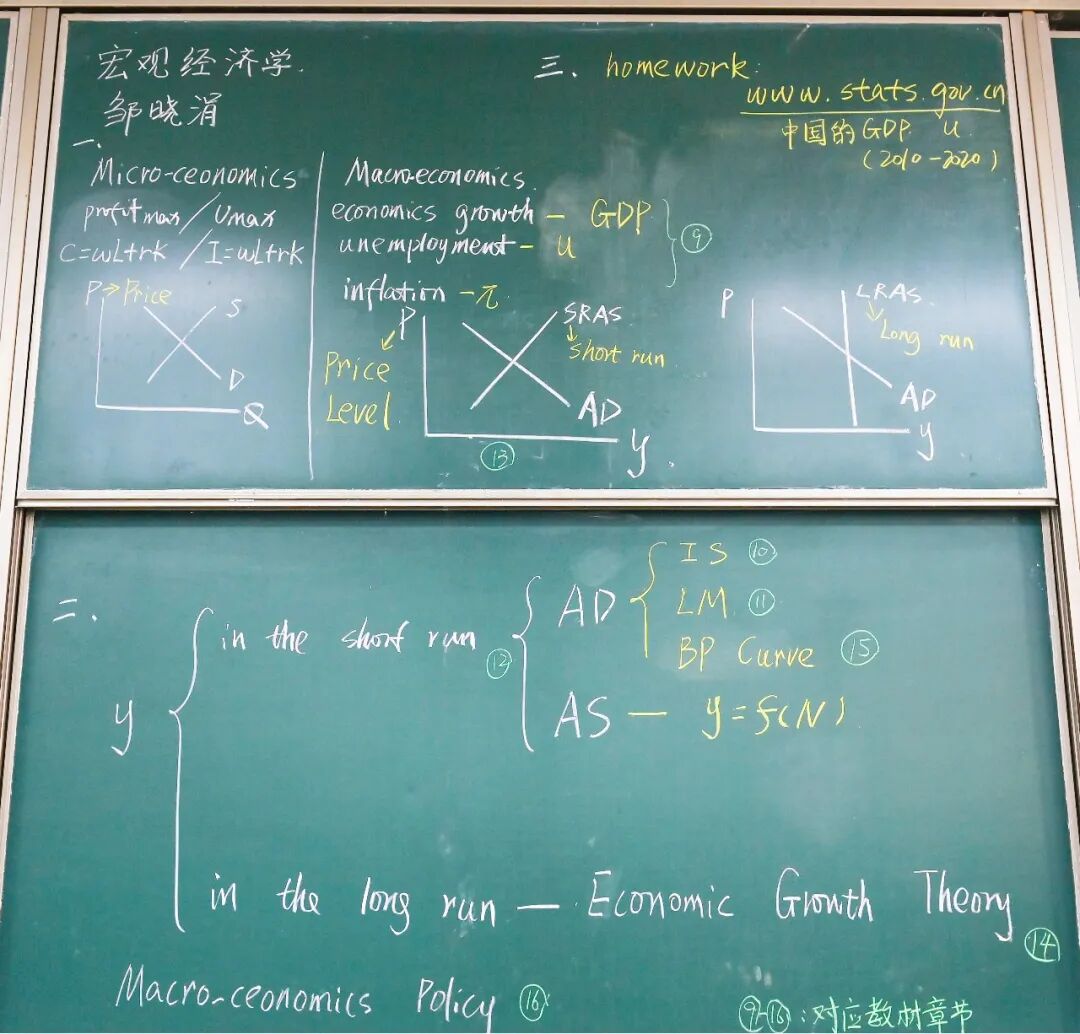 宏观经济学.
邹晓涓
一.
Micro-ceonomics
profit max / Umax
C=wL+rk / I=wL+rk
P → Price
S
D
Q
Macro-economics.
economics growth — GDP
unemployment — u
⑨
inflation — π.
P
Price
Level
SRAS
short run
AD
y.
⑬
P
LRAS.
Long run
AD
y
三. homework:
www.stats.gov.cn
中国的GDP. u.
(2010-2020)
二.
y
in the short run
⑫
AD
IS ⑩
LM. ⑪
BP Curve ⑮
AS — y=f(N)
in the long run — Economic Growth Theory
⑭
Macro-ceonomics Policy ⑯
⑨-⑯:对应教材章节